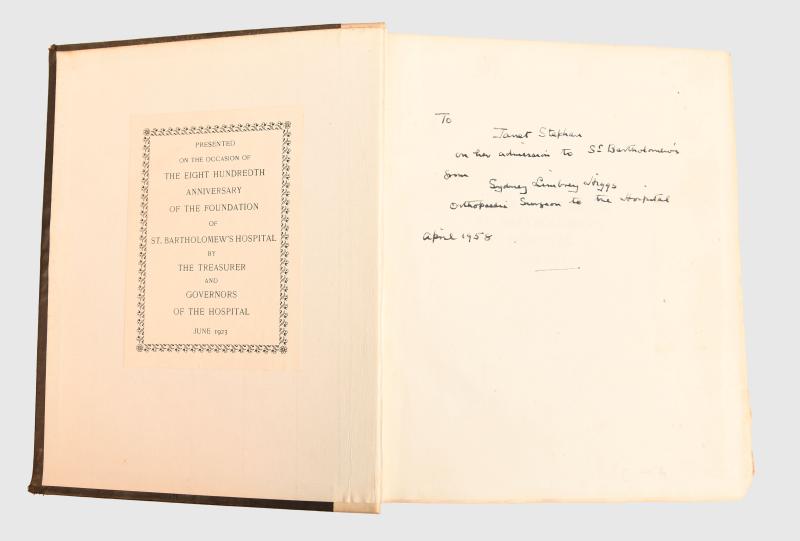 PRESENTED
ON THE OCCASION OF
THE EIGHT HUNDREDTH
ANNIVERSARY
OF THE FOUNDATION
OF
ST. BARTHOLOMEW'S HOSPITAL
BY
THE TREASURER
AND
GOVERNORS
OF THE HOSPITAL
JUNE 1923
To
Janet Stephen
on her admission to St Bartholomew's
from
Sydney Limbrey Higgs
Orthopaedic Surgeon to the Hospital
April 1958